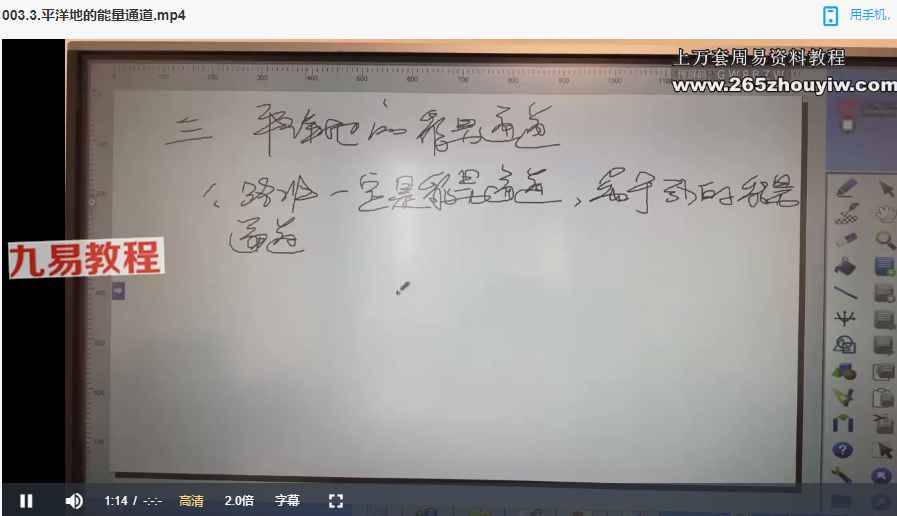 003.3.平洋地的能量通道.mp4
用手机
上万套周易资料教程
www.265zhouyiw.com
三 平洋地的能量通道
1、路水一定是能量通道,属于外的能量
通道
九易教程
1:14 / -:-:-
高清
2.0倍
字幕